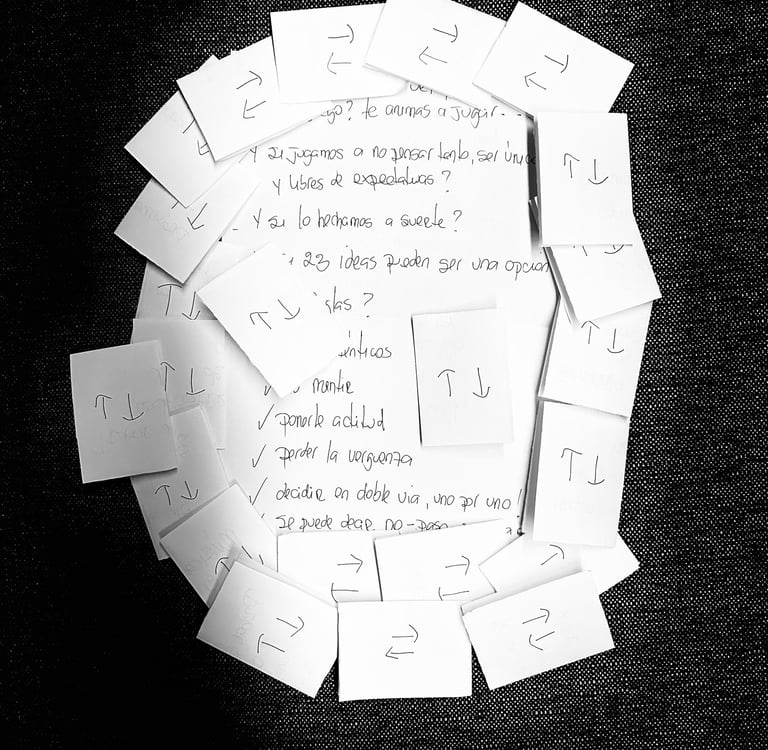 te animas a jugar.
Y si jugamos a no pensar tanto, ser
y libres de expectativas?
Y si lo hechamos a suerte?
23 ideas pueden ser una opcion
?
✓ mentir
✓ ponerle actitud
✓ perder la verguenza
✓ decidir en doble via, uno por uno!
✓ Se puede decir no-paso